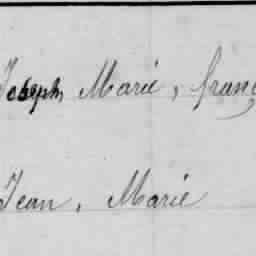 Joseph Marie, franç
Jean, Marie